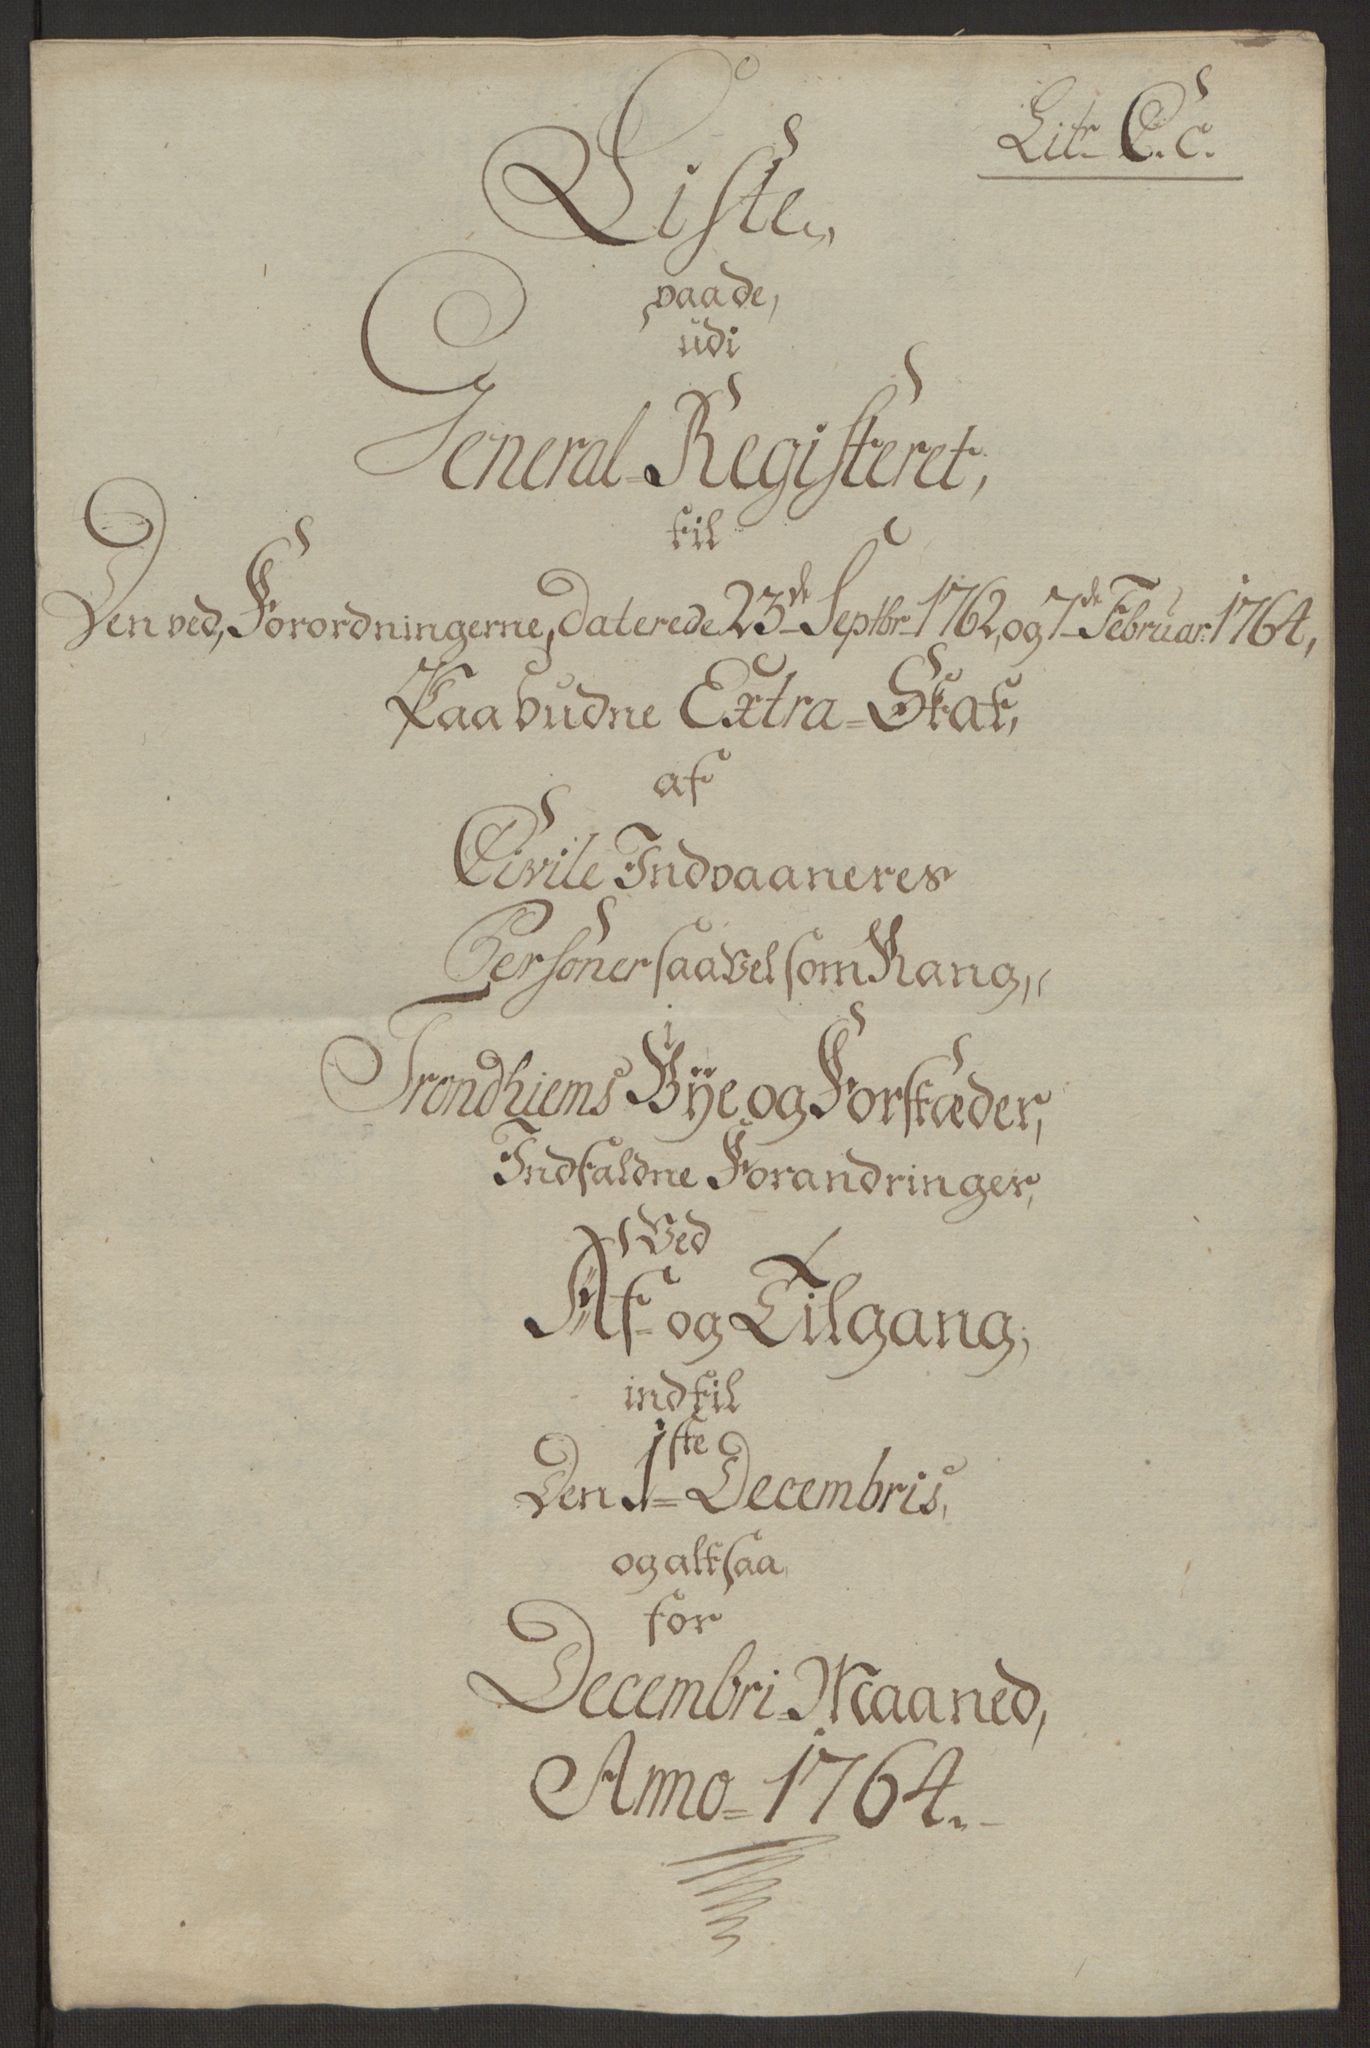 Litr C. c.
Liste,
paa de,
udi
General-Registeret,
til
Den ved, Forordningerne, daterede 23de Septbr 1762, og 7de Februar: 1764,
Paabudne Extra-Skat,
af
Civile Indvaaneres
Personer saavel som Rang,
i
Trondhiems Bÿe og Forstæder,
Indfaldne Forandringer,
Ved
Af- og Tilgang,
indtil
Den 1ste Decembris,
og altsaa
for
Decembri-Maaned,
Anno-1764.